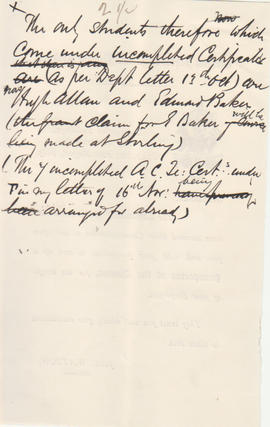 x
The only students therefore which now
come under uncompleted Certificates
are (as per Dept letter 19th Oct) are
now Hugh Allan and Edward Baker
(the grant claim for E Baker might be
being made at Stirling)
(The 4 uncompleted A.C. Te: Cert.s under
in my letter of 16th Nov: being
been arranged for already)